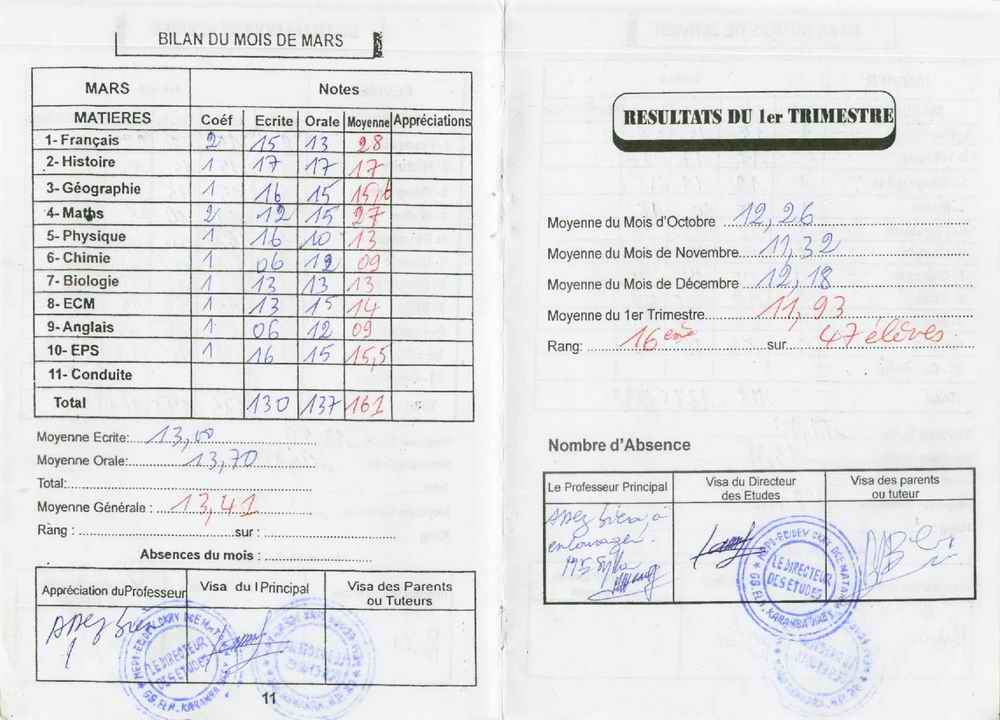 BILAN DU MOIS DE MARS
MARS Notes
MATIERES Coéf Ecrite Orale Moyenne Appréciations
1- Français 2 15 13 28
2- Histoire 1 17 17 17
3- Géographie 1 16 15 15,6
4- Maths 2 12 15 27
5- Physique 1 16 10 13
6- Chimie 1 06 12 09
7- Biologie 1 13 13 13
8- ECM 1 13 15 14
9- Anglais 1 06 12 09
10- EPS 1 16 15 15,5
11- Conduite
Total 130 137 161
Moyenne Ecrite: 13,00
Moyenne Orale: 13,70
Total:
Moyenne Générale : 13,41
Rang : sur :
Absences du mois :
Appréciation du Professeur Visa du I Principal Visa des Parents
ou Tuteurs
Assez bien
LE DIRECTEUR
DES ETUDES
11
RESULTATS DU 1er TRIMESTRE
Moyenne du Mois d'Octobre 12,26
Moyenne du Mois de Novembre 11,32
Moyenne du Mois de Décembre 12,18
Moyenne du 1er Trimestre 11,93
Rang: 16 ème sur 47 élèves
Nombre d'Absence
Le Professeur Principal Visa du Directeur
des Etudes Visa des parents
ou tuteur
Assez bien, à
encourager.
LE DIRECTEUR
DES ETUDES